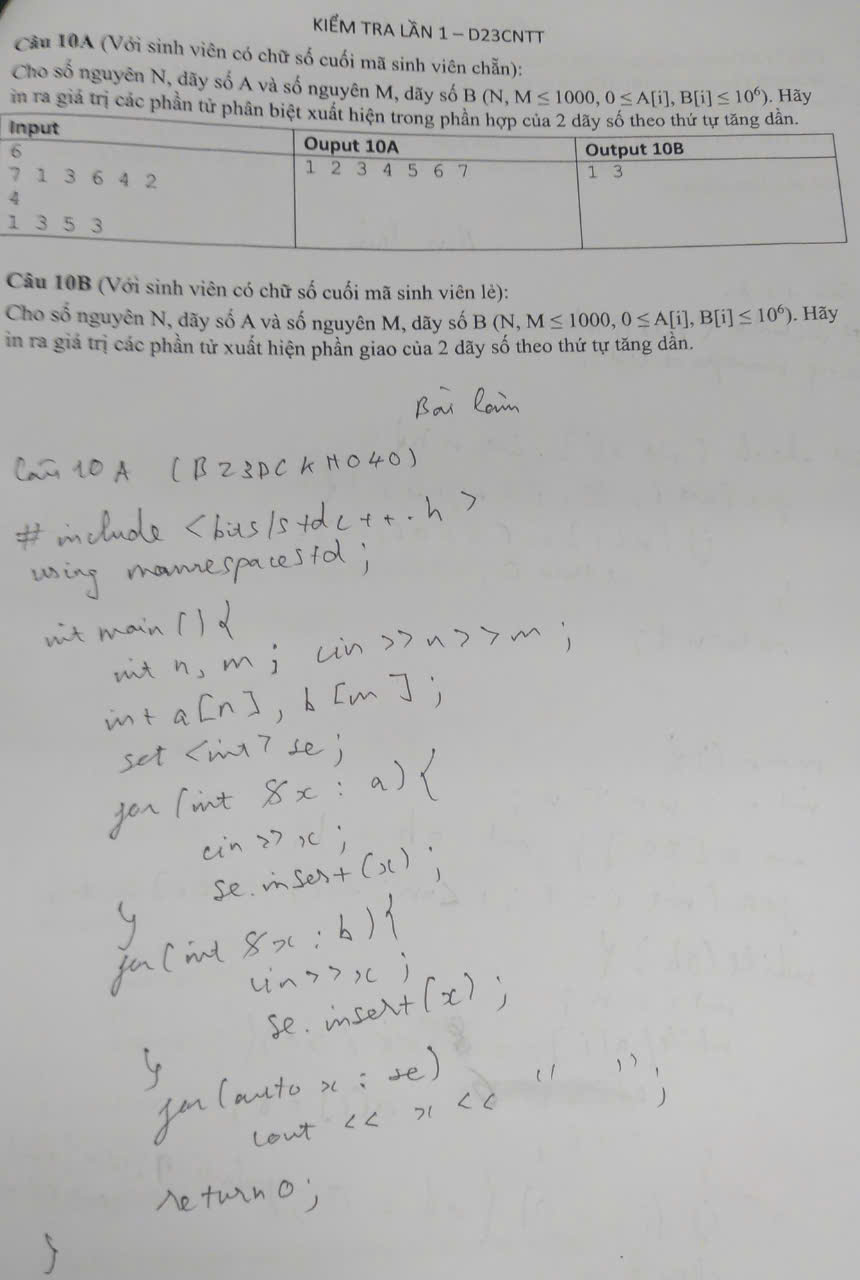 KIỂM TRA LẦN 1 – D23CNTT
Câu 10A (Với sinh viên có chữ số cuối mã sinh viên chẵn):
Cho số nguyên N, dãy số A và số nguyên M, dãy số B (N, M ≤ 1000, 0 ≤ A[i], B[i] ≤ 10⁶). Hãy
in ra giá trị các phần tử phân biệt xuất hiện trong phần hợp của 2 dãy số theo thứ tự tăng dần.
Input Ouput 10A Output 10B
6 1 2 3 4 5 6 7 1 3
7 1 3 6 4 2
4
1 3 5 3
Câu 10B (Với sinh viên có chữ số cuối mã sinh viên lẻ):
Cho số nguyên N, dãy số A và số nguyên M, dãy số B (N, M ≤ 1000, 0 ≤ A[i], B[i] ≤ 10⁶). Hãy
in ra giá trị các phần tử xuất hiện phần giao của 2 dãy số theo thứ tự tăng dần.
Bài làm
Câu 10A (B23DCKH040)
#include <bits/stdc++.h>
using namespace std;
int main() {
int n, m; cin >> n >> m;
int a[n], b[m];
set <int> se;
for (int &x : a) {
cin >> x;
se.insert(x);
}
for (int &x : b) {
cin >> x;
se.insert(x);
}
for (auto x : se)
cout << x << " ";
return 0;
}